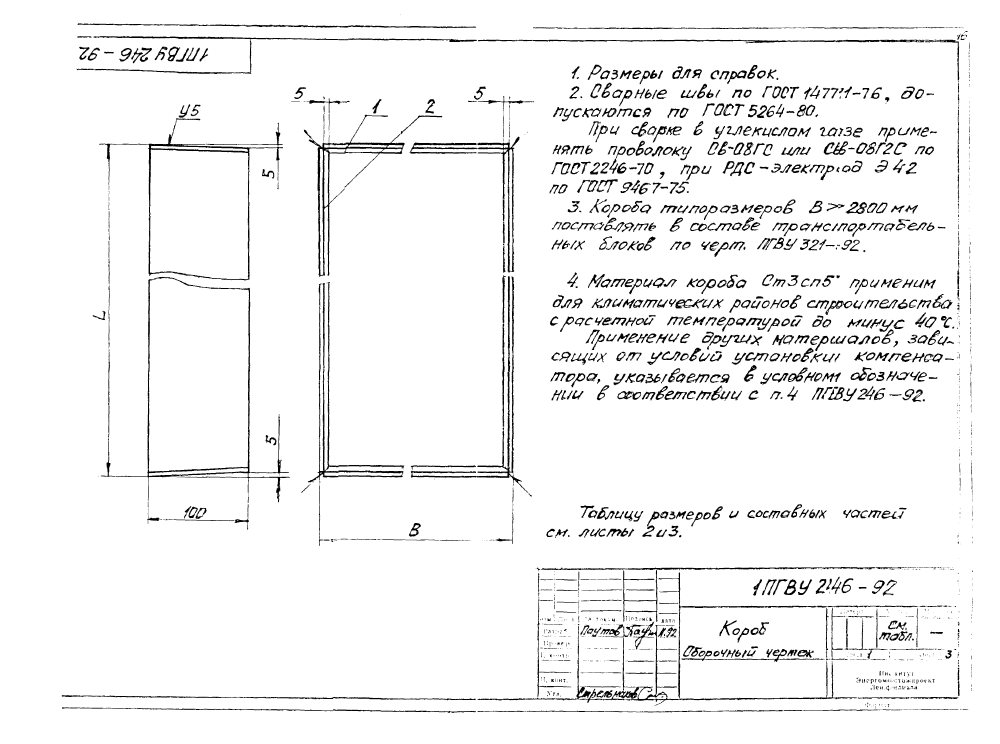 16
1ПГВУ 246 - 92
1. Размеры для справок.
2. Сварные швы по ГОСТ 14771-76, до-
пускаются по ГОСТ 5264-80.
При сварке в углекислом газе приме-
нять проволоку Св-08ГС или Св-08Г2С по
ГОСТ 2246-70, при РДС - электрод Э42
по ГОСТ 9467-75.
3. Короба типоразмеров В > 2800 мм
поставлять в составе транспортабель-
ных блоков по черт. ПГВУ 321-92.
4. Материал короба Ст3сп5 применим
для климатических районов строительства
с расчетной температурой до минус 40°С.
Применение других материалов, зави-
сящих от условий установки компенса-
тора, указывается в условном обозначе-
нии в соответствии с п.4 ПГВУ 246-92.
Таблицу размеров и составных частей
см. листы 2 и 3.
У5
5
L
5
100
5
1
2
5
В
1ПГВУ 246 - 92
Короб
Сборочный чертеж
см.
табл.
—
1
3
Подпись
дата
Паутов
Н. конт.
Утв.
Стрельников
Институт
Энергомонтажпроект
Лен.филиала
Формат